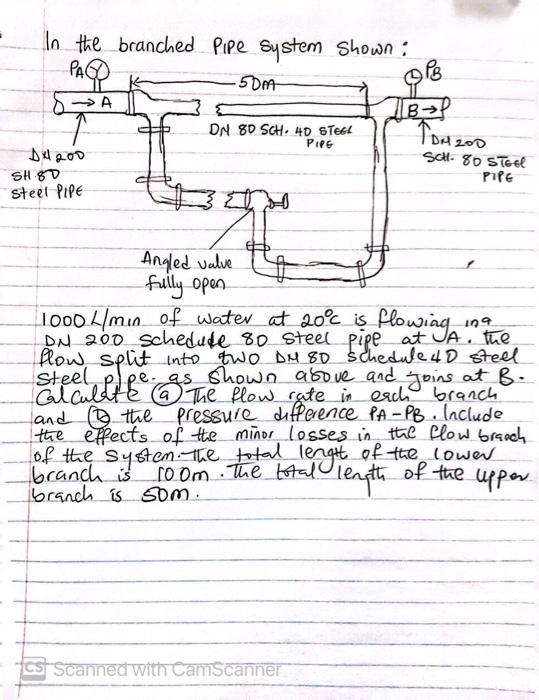 In the branched Pipe System Shown:
PA
PB
50m
→ A
B →
DN 80 SCH. 40 STEEL
PIPE
DN 200
SH 80
Steel PIPE
DN 200
SCH. 80 STEEL
PIPE
Angled valve
fully open
1000 L/min of water at 20°c is flowing in a
DN 200 schedule 80 Steel pipe at A. the
flow split into two DN 80 schedule 40 steel
steel pipe. as shown above and joins at B.
Calculate (a) The flow rate in each branch
and (b) the pressure difference PA-PB. Include
the effects of the minor losses in the flow branch
of the System. the total lenght of the lower
branch is 100m. The total length of the upper
branch is 50m.
CS Scanned with CamScanner